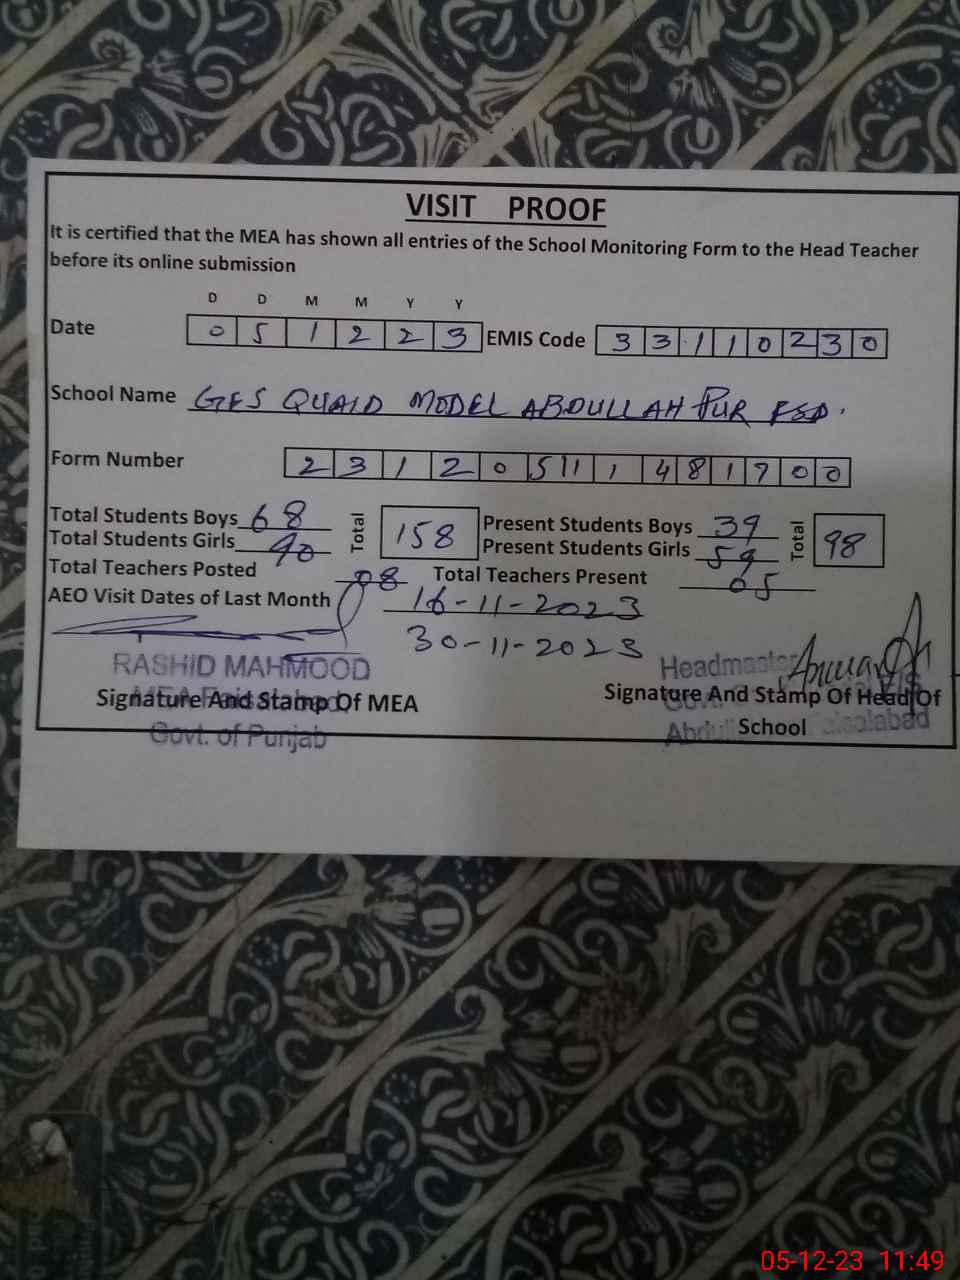 VISIT PROOF
It is certified that the MEA has shown all entries of the School Monitoring Form to the Head Teacher
before its online submission
D D M M Y Y
Date 0 5 1 2 2 3 EMIS Code 3 3 1 1 0 2 3 0
School Name GES QUAID MODEL ABDULLAH PUR FSD.
Form Number 2 3 1 2 0 5 11 1 4 8 1 7 0 0
Total Students Boys 68 Total 158 Present Students Boys 39 Total 98
Total Students Girls 90 Present Students Girls 59
Total Teachers Posted 08 Total Teachers Present 05
AEO Visit Dates of Last Month 16-11-2023
30-11-2023
RASHID MAHMOOD Headmaster
Signature And Stamp Of MEA Signature And Stamp Of Head Of
School
Govt. of Punjab
05-12-23 11:49